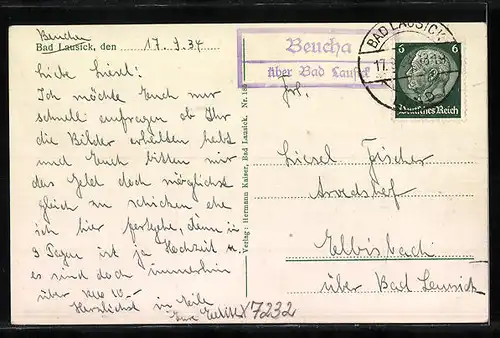 Beucha
Bad Lausick, den 17.9.34
Liebe Liesel!
Ich möchte Euch nur
schnell anfragen ob Ihr
die Bilder erhalten habt
und Euch bitten mir
das Geld doch möglichst
gleich zu schicken ehe
ich hier fortgehe, denn in
3 Tagen ist ja Hochzeit u.
es sind doch immerhin
über 10-
Herzlichst in Eile
Eure
X7232
Verlag: Hermann Kaiser, Bad Lausick. Nr.
Beucha
über Bad Lausick
BAD LAUSICK
17.
6 6
Deutsches Reich
Frl.
Liesel Fischer
Elbisbach
über Bad Lausick